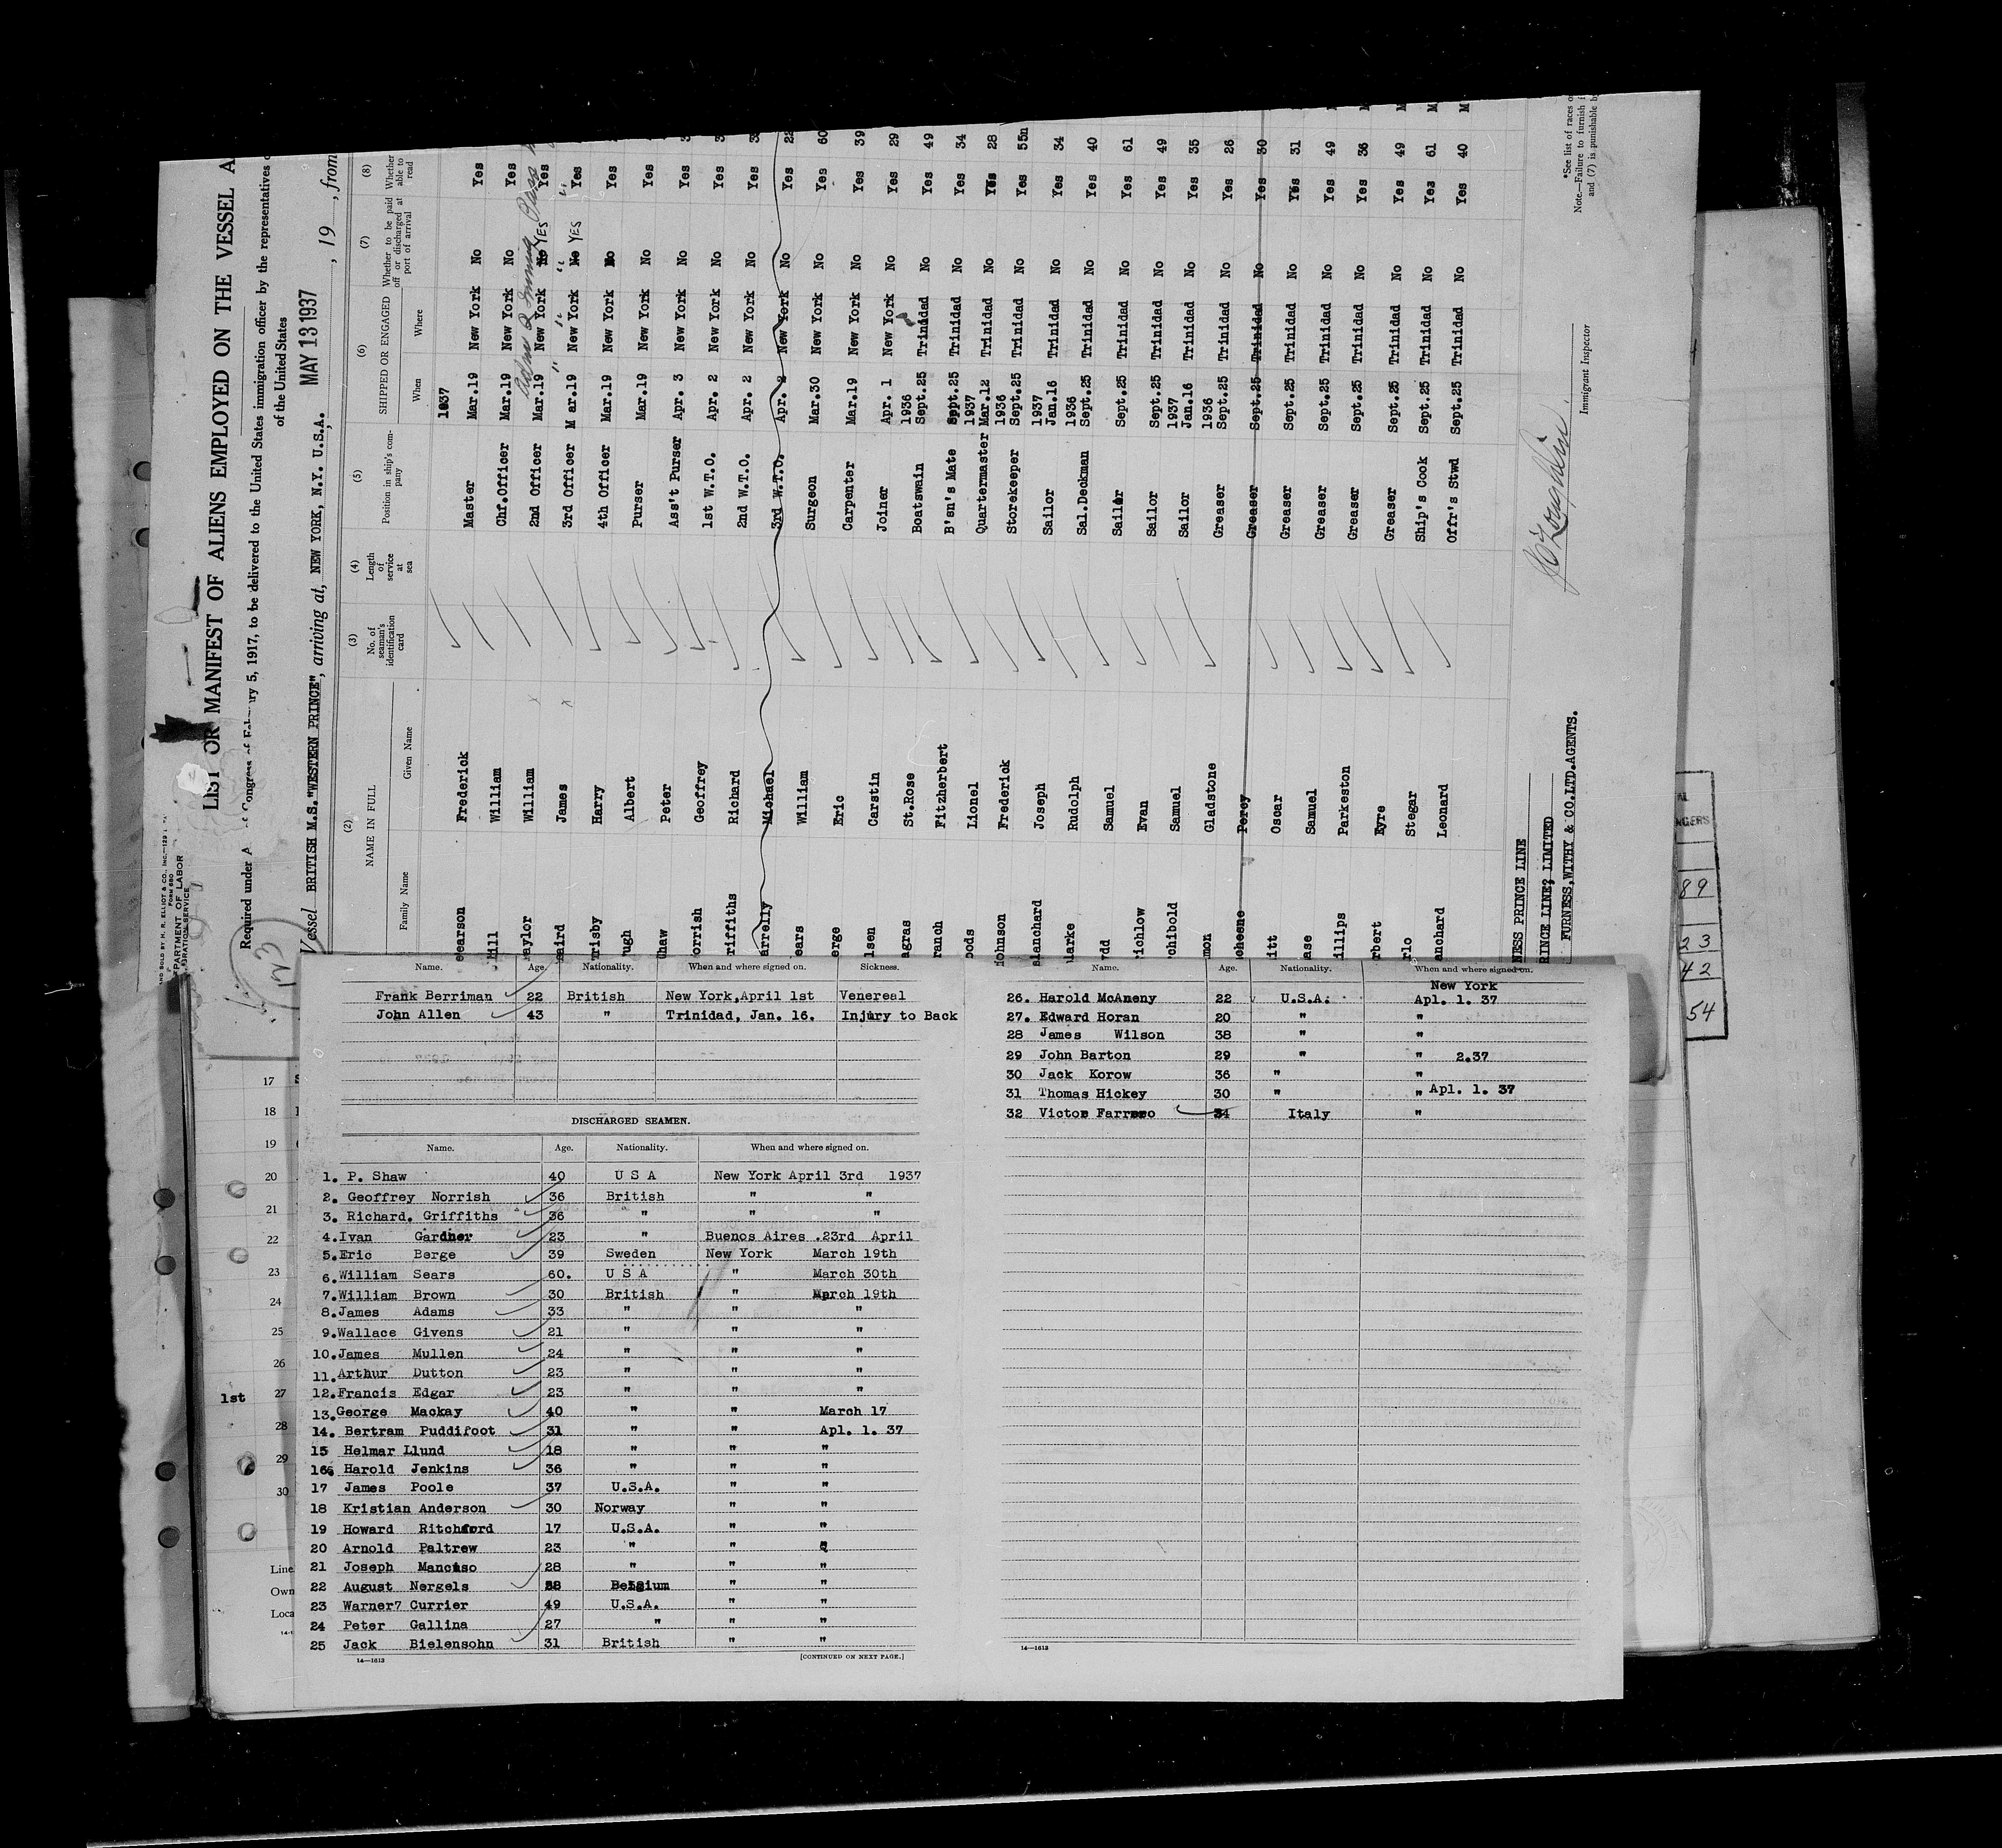 LIST OR MANIFEST OF ALIENS EMPLOYED ON THE VESSEL A
Required under A of Congress of February 5, 1917, to be delivered to the United States immigration officer by the representatives o
of the United States
Vessel BRITISH M.S."WESTERN PRINCE", arriving at, NEW YORK, N.Y. U.S.A. MAY 13 1937, 19 , from
(2) (3) (4) (5) (6) (7) (8)
NAME IN FULL No. of seaman's identification card Length of service at sea Position in ship's company SHIPPED OR ENGAGED Whether to be paid off or discharged at port of arrival Whether able to read
Family Name Given Name When Where
1937
earson Frederick Master Mar.19 New York No Yes
Hill William Chf.Officer Mar.19 New York No Yes
aylor William 2nd Officer Mar.19 New York No YES Yes
aird James 3rd Officer M ar.19 New York No YES Yes
risby Harry 4th Officer Mar.19 New York No Yes
ugh Albert Purser Mar.19 New York No Yes
haw Peter Ass't Purser Apr. 3 New York No Yes 3
orrish Geoffrey 1st W.T.O. Apr. 2 New York No Yes 3
riffiths Richard 2nd W.T.O. Apr. 2 New York No Yes 3
arrelly Michael 3rd W.T.O. Apr. 2 New York No Yes 22
ears William Surgeon Mar.30 New York No Yes 60
erge Eric Carpenter Mar.19 New York No Yes 39
lsen Carstin Joiner Apr. 1 New York No Yes 29
1936
agras St.Rose Boatswain Sept.25 Trinidad No Yes 49
ranch Fitzherbert B'sn's Mate Sept.25 Trinidad No Yes 34
1937
oods Lionel Quartermaster Mar.12 Trinidad No Yes 28
1936
ohnson Frederick Storekeeper Sept.25 Trinidad No Yes 55n
1937
lanchard Joseph Sailor Jan.16 Trinidad No Yes 34
1936
larke Rudolph Sal.Deckman Sept.25 Trinidad No Yes 40
dd Samuel Sailor Sept.25 Trinidad No Yes 61
ichlow Evan Sailor Sept.25 Trinidad No Yes 49
1937
chibold Samuel Sailor Jan.16 Trinidad No Yes 35
1936
mon Gladstone Greaser Sept.25 Trinidad No Yes 26
cheene Percy Greaser Sept.25 Trinidad No Yes 30
itt Oscar Greaser Sept.25 Trinidad No Yes 31
ase Samuel Greaser Sept.25 Trinidad No Yes 49
illips Parkeston Greaser Sept.25 Trinidad No Yes 36
rbert Eyre Greaser Sept.25 Trinidad No Yes 49
rlo Stegar Ship's Cook Sept.25 Trinidad No Yes 61
anchard Leonard Offr's Stwd Sept.25 Trinidad No Yes 40
NESS PRINCE LINE
RINCE LINE, LIMITED
FURNESS,WITHY & CO.LTD.AGENTS.
Immigrant Inspector
*See list of races o
Note.—Failure to furnish
and (7) is punishable b
89
23
42
54
Name. Age. Nationality. When and where signed on. Sickness.
Frank Berriman 22 British New York,April 1st Venereal
John Allen 43 " Trinidad, Jan. 16. Injury to Back
DISCHARGED SEAMEN.
Name. Age. Nationality. When and where signed on.
1. P. Shaw 40 U S A New York April 3rd 1937
2. Geoffrey Norrish 36 British " "
3. Richard. Griffiths 36 " " "
4.Ivan Gardner 23 " Buenos Aires .23rd April
5.Eric Berge 39 Sweden New York March 19th
6.William Sears 60. U S A " March 30th
7.William Brown 30 British " March 19th
8.James Adams 33 " " "
9.Wallace Givens 21 " " "
10.James Mullen 24 " " "
11.Arthur Dutton 23 " " "
12.Francis Edgar 23 " " "
13.George Mackay 40 " " March 17
14. Bertram Puddifoot 31 " " Apl. 1. 37
15 Helmar Llund 18 " " "
16. Harold Jenkins 36 " " "
17 James Poole 37 U.S.A. " "
18 Kristian Anderson 30 Norway " "
19 Howard Ritchford 17 U.S.A. " "
20 Arnold Paltrew 23 " " 2
21 Joseph Mancuso 28 " " "
22 August Nergels 38 Belgium " "
23 Warner7 Currier 49 U.S.A. " "
24 Peter Gallina 27 " " "
25 Jack Bielensohn 31 British " "
14—1613 [CONTINUED ON NEXT PAGE.]
Name. Age. Nationality. When and where signed on.
New York
26. Harold McAneny 22 U.S.A. Apl. 1. 37
27. Edward Horan 20 " "
28 James Wilson 38 " "
29 John Barton 29 " " 2.37
30 Jack Korow 36 " "
31 Thomas Hickey 30 " " Apl. 1. 37
32 Victor Farrero 34 Italy "
14—1613
17
18
19
20
21
22
23
24
25
26
1st 27
28
29
30
Line
Own
Loca